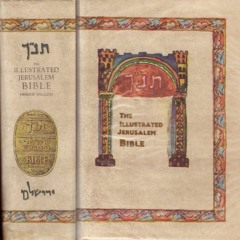 תנ״ך
THE
ILLUSTRATED
JERUSALEM
BIBLE
BIBLE
ירושלים
תנ״ך
THE
ILLUSTRATED
JERUSALEM
BIBLE